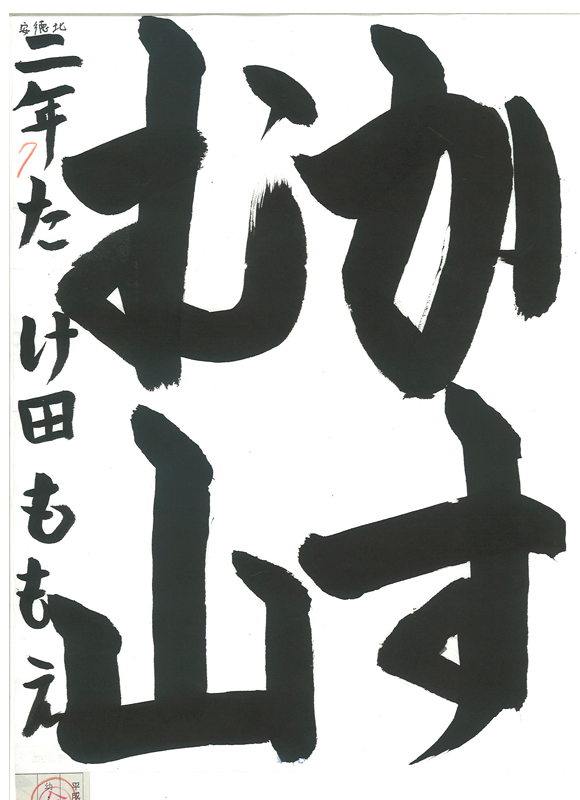 かす
む山
二年 たけ田 ももえ
安徳北
平成